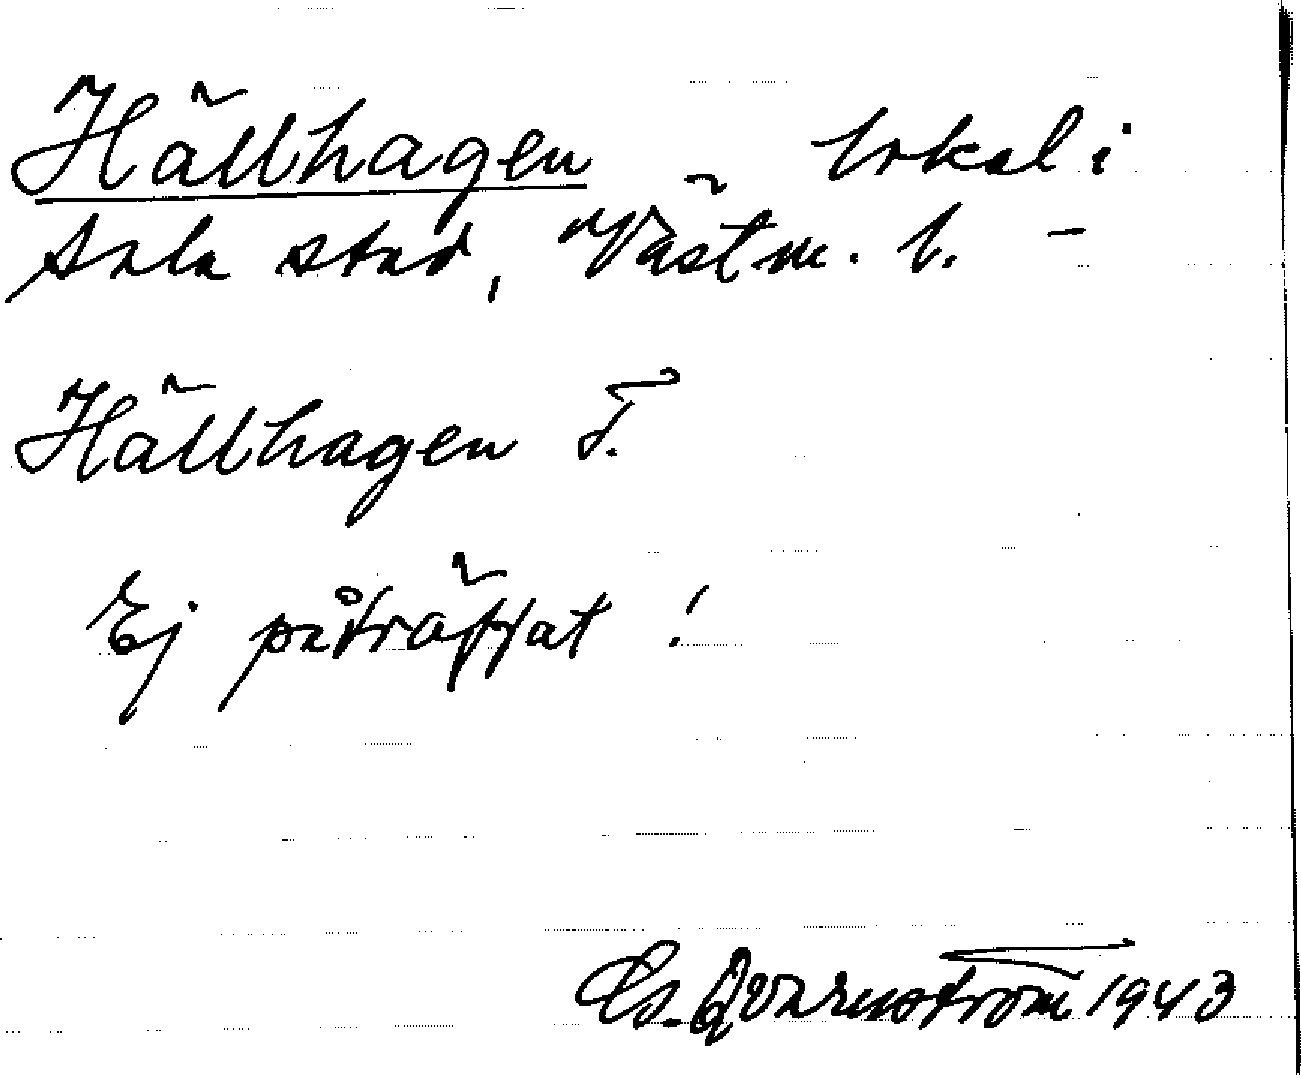 Hällhagen lokal i
Sala stad, Västm. l. –
Hällhagen T.
Ej påträffat !
Es. Qvarnström 1943